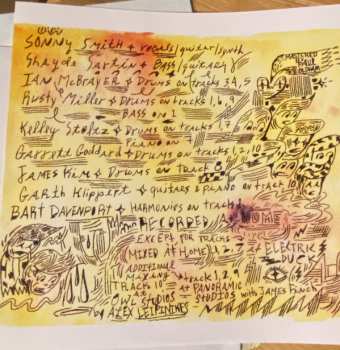 SONNY SMITH & vocals/guitar/synth
Shayde Sartin & BASS/guitars
IAN McBRAYER & Drums on tracks 3,4,5
Rusty Miller & Drums on tracks 1,6,9
BASS ON 1
Kelley Stoltz & Drums on tracks
Piano on
Garrett Goddard & Drums on tracks 1,2,10
JAMES KIM & DRUMS on Track 8
GARTH Klippert & guitars & PIANO on track 10
BART DAVENPORT & HARMONIES on track
RECORDED AT HOME
EXCEPT FOR TRACKS
MIXED AT HOME
AT ELECTRIC
DUCK
ADDITIONAL
MIXING
tracks 1,2,9
TRACKS 10
AT PANORAMIC
AT
OWL STUDIOS
STUDIOS with JAMES
by ALEX